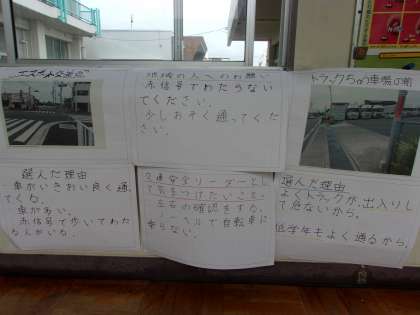 地域の人へのお願い
赤信号でわたらない
でください。
少しおそく通ってくだ
さい。
トラックちゅう車場の前
選んだ理由
・車がいきおい良く通っ
てくる。
・車が多い。
・赤信号で歩いてわた
る人がいる。
交通安全リーダーとし
て気をつけたいこと。
左右の確認をする。
ノーヘルで自転車に
乗らない。
選んだ理由
よくトラックが、出入りし
て危ないから。
低学年もよく通るから。